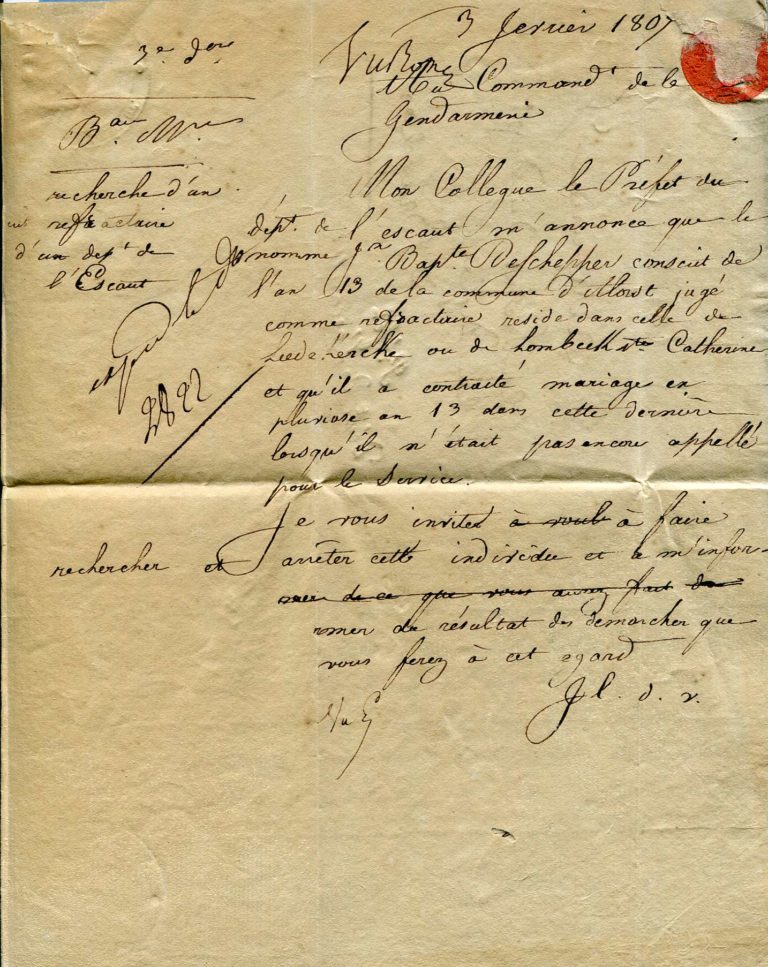 3 Janvier 1807
3e Don
Vu Bon
Au Command.t de la
Gendarmerie
Bau Mre
recherche d'un
refractaire
d'un dept de
l'Escaut
2822
Mon Collegue le Préfet du
dépt. de l'escaut m'annonce que le
nommé Jn Bapte Deschepper conscrit de
l'an 13 de la commune d'Alost jugé
comme refractaire reside dans celle de
Liedekercke ou de Lombeek Ste Catherine
et qu'il a contraité mariage en
pluviose an 13 dans cette dernière
lorsqu'il n'était pas encore appellé
pour le Service.
Je vous invite à voul à faire
rechercher et arrêter cette individu et à m'infor-
mer de ce que vous aurez fait de
rmer du résultat des demarches que
vous ferez à cet egard
J l. d. v.